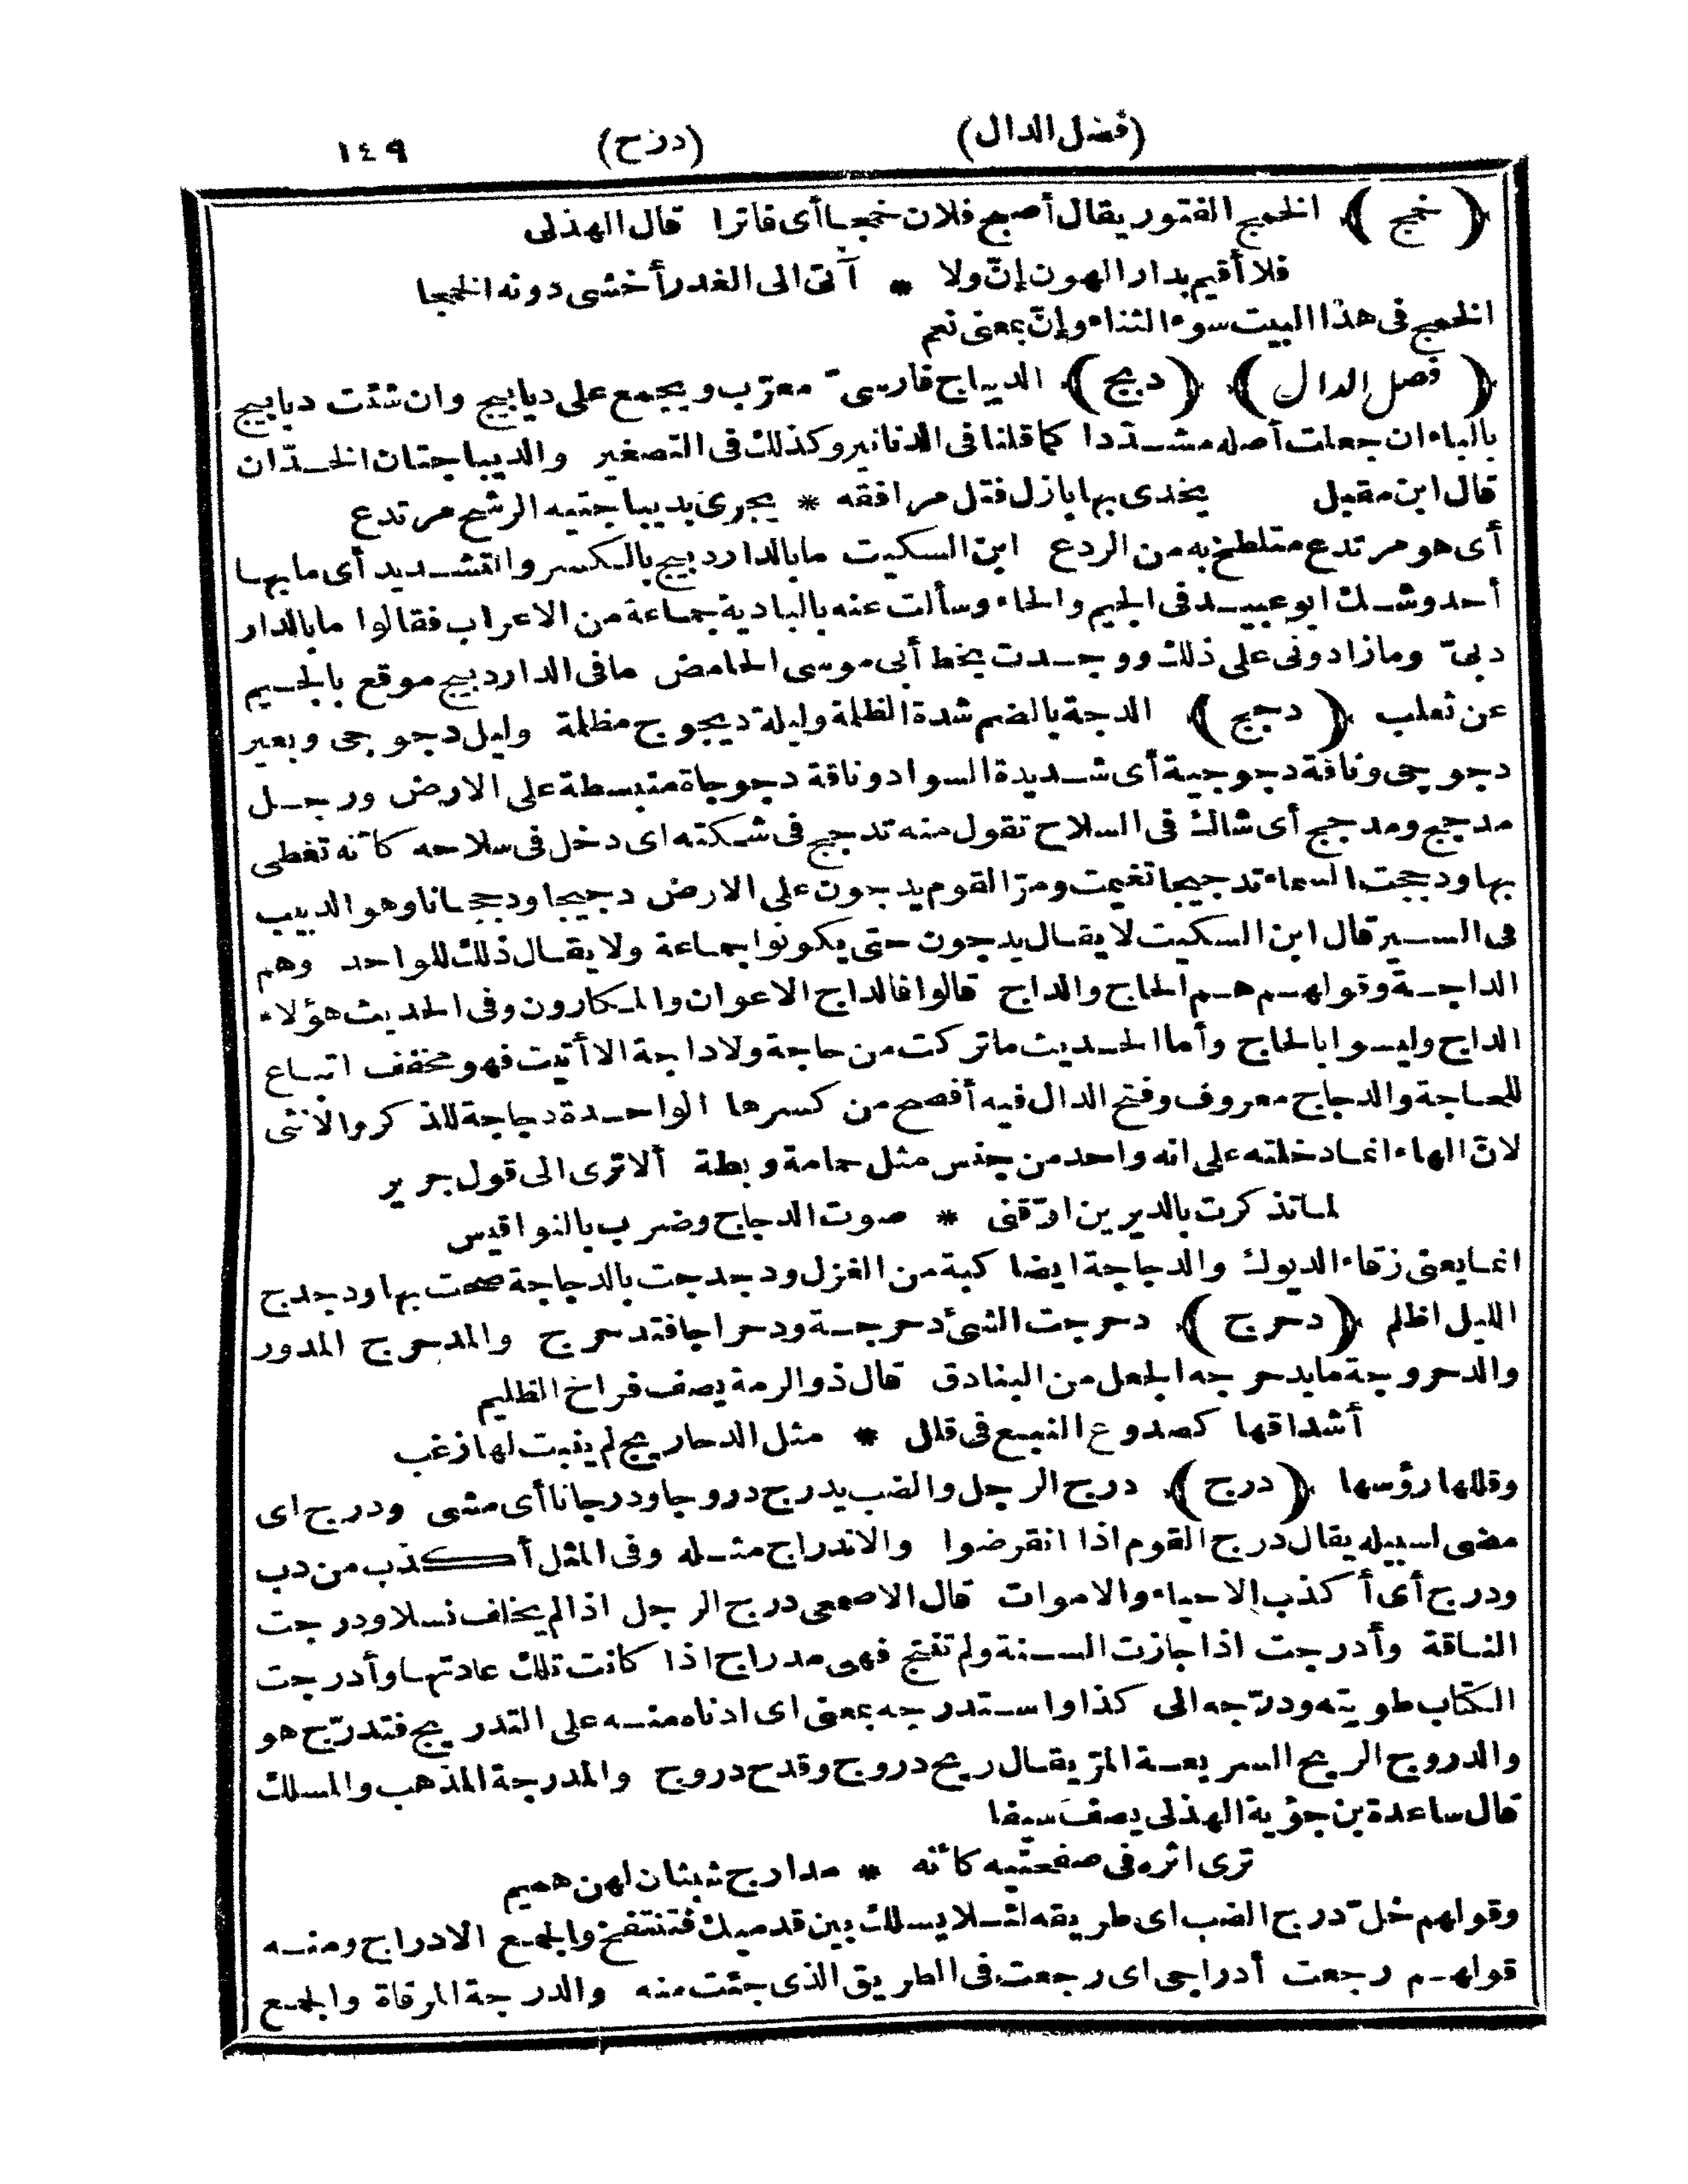 (فصل الدال) (درج) ١٤٩
﴿خمج﴾ الخمج الفتور يقال أصبح فلان خمجا أى فاترا قال الهذلى
فلا أقيم بدار الهون إنّ ولا * آتى الى الغدر أخشى دونه الخمجا
الخمج فى هذا البيت سوء الثناء وإنّ بمعنى نعم
﴿فصل الدال﴾ ﴿دبج﴾ الديباج فارسىّ معرّب ويجمع على ديابيج وان شئت دبابيج
بالباء ان جعلت أصله مشدّدا كما قلنا فى الدنانير وكذلك فى التصغير والديباجتان الخدّان
قال ابن مقبل يخدى بها بازل فتل مرافقه * يجرى بديباجتيه الرشح مرتدع
أى هو مرتدع متلطخ به من الردع ابن السكيت ما بالدار دبيج بالكسر والتشديد أى ما بها
أحد وشك ابو عبيد فى الجيم والحاء وسألت عنه بالبادية جماعة من الاعراب فقالوا ما بالدار
دبىّ وما زادونى على ذلك ووجدت بخط أبى موسى الحامض ما فى الدار دبيج موقع بالجيم
عن ثعلب ﴿دجج﴾ الدجة بالضم شدة الظلمة وليلة ديجوج مظلمة وليل دجوجى وبعير
دجوجى وناقة دجوجية أى شديدة السواد وناقة دجوجاة متبسطة على الارض ورجل
مدجج ومدجج أى شاك فى السلاح تقول منه تدجج فى شكته اى دخل فى سلاحه كأنه تغطى
بها ودججت السماء تدجيجا تغيمت ومرّ القوم يدجون على الارض دجيجا ودججانا وهو الدبيب
فى السير قال ابن السكيت لا يقال يدجون حتى يكونوا جماعة ولا يقال ذلك للواحد وهم
الداجة وقولهم هم الحاج والداج قالوا فالداج الاعوان والمكارون وفى الحديث هؤلاء
الداج وليسوا بالحاج وأما الحديث ما تركت من حاجة ولا داجة الا أتيت فهو مخفف اتباع
للحاجة والدجاج معروف وفتح الدال فيه أفصح من كسرها الواحدة دجاجة للذكر والانثى
لانّ الهاء انما دخلته على انه واحد من جنس مثل حمامة وبطة ألا ترى الى قول جرير
لما تذكرت بالديرين ارّقنى * صوت الدجاج وضرب بالنواقيس
انما يعنى زقاء الديوك والدجاجة ايضا كبة من الغزل ودجدجت بالدجاجة صحت بها ودجدج
الليل اظلم ﴿دحرج﴾ دحرجت الشئ دحرجة ودحراجا فتدحرج والمدحرج المدور
والدحروجة ما يدحرجه الجعل من البنادق قال ذو الرمة يصف فراخ الظليم
أشداقها كصدوع النبع فى قلل * مثل الدحاريج لم ينبت لها زغب
وقللها رؤسها ﴿درج﴾ درج الرجل والضب يدرج دروجا ودرجانا أى مشى ودرج اى
مضى لسبيله يقال درج القوم اذا انقرضوا والاندراج مثله وفى المثل أكذب من دب
ودرج أى أكذب الاحياء والاموات قال الاصمعى درج الرجل اذا لم يخلف نسلا ودرجت
الناقة وأدرجت اذا جازت السنة ولم تنتج فهى مدراج اذا كانت تلك عادتها وأدرجت
الكتاب طويته ودرّجه الى كذا واستدرجه بمعنى اى ادناه منه على التدريج فتدرّج هو
والدروج الريح السريعة المرّ يقال ريح دروج وقدح دروج والمدرجة المذهب والمسلك
قال ساعدة بن جؤية الهذلى يصف سيفا
ترى اثره فى صفحتيه كأنه * مدارج شبثان لهن هميم
وقولهم خلّ درج الضب اى طريقه لئلا يسلك بين قدميك فتنتفخ والجمع الادراج ومنه
قولهم رجعت أدراجى اى رجعت فى الطريق الذى جئت منه والدرجة المرقاة والجمع